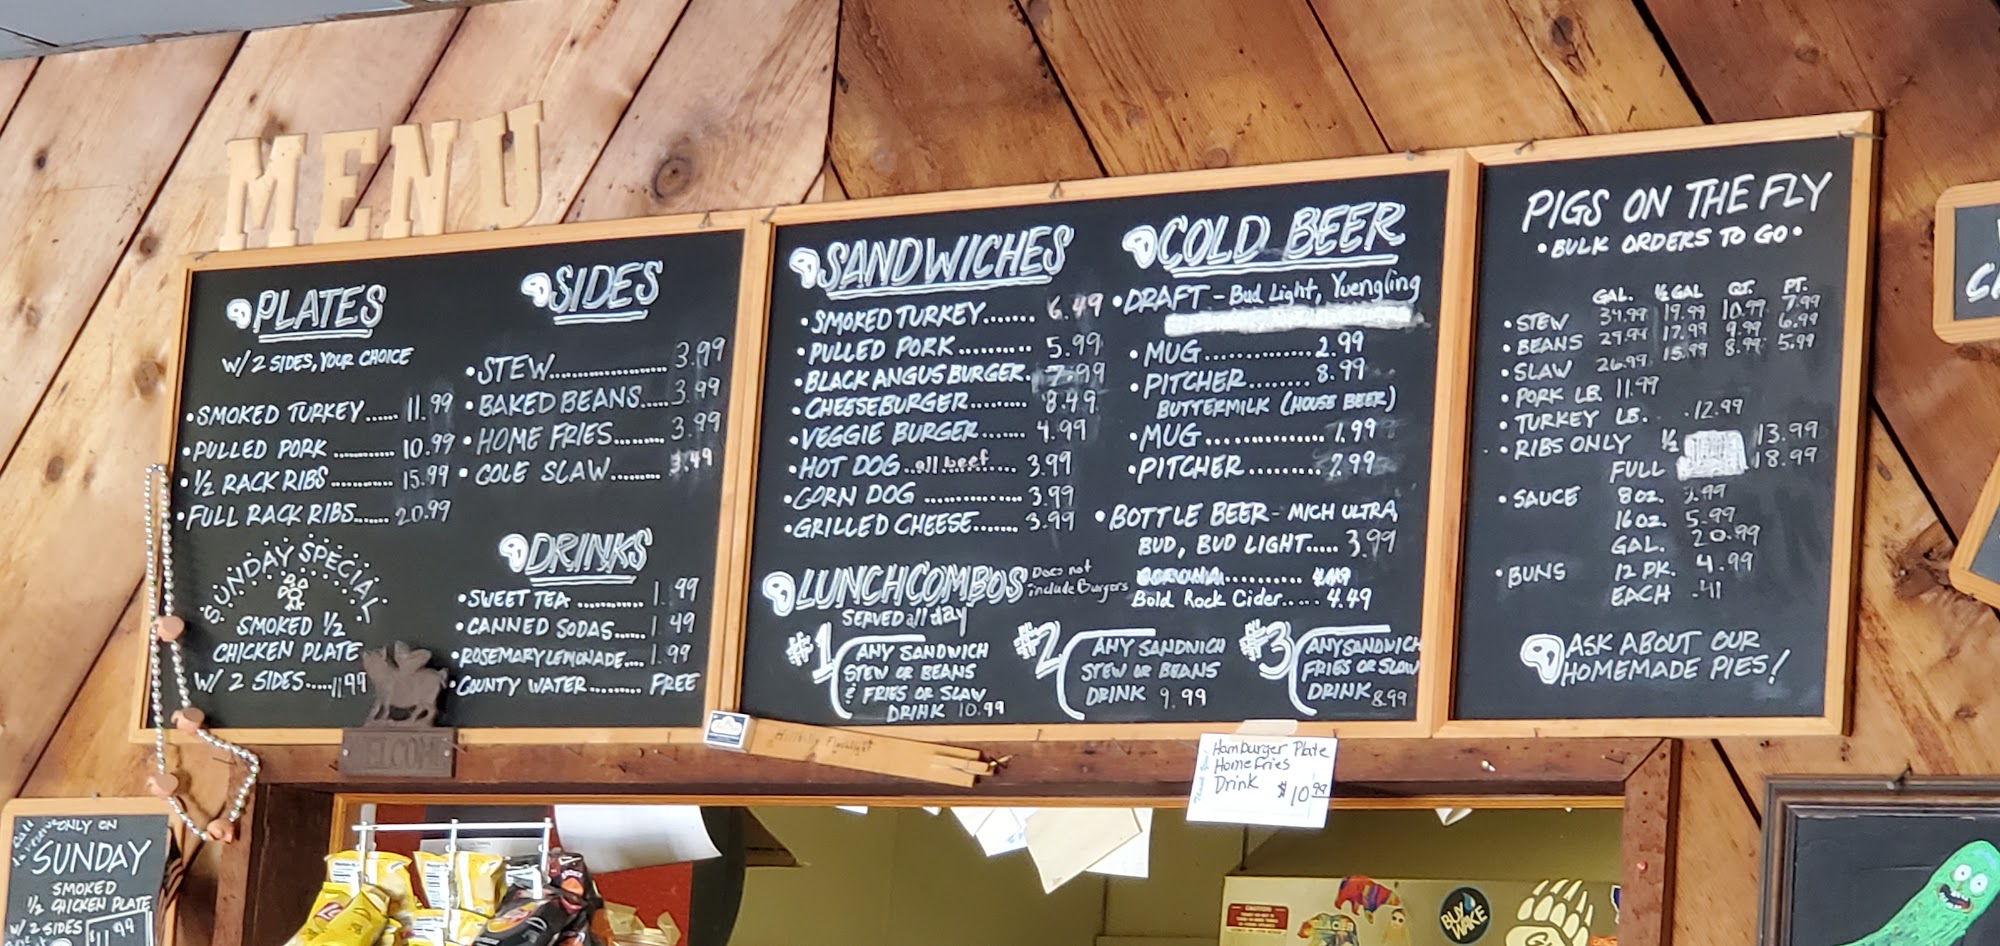 MENU
PLATES
W/ 2 SIDES, YOUR CHOICE
• SMOKED TURKEY...... 11.99
• PULLED PORK ............ 10.99
• 1/2 RACK RIBS ............ 15.99
• FULL RACK RIBS...... 20.99
SUNDAY SPECIAL
SMOKED 1/2
CHICKEN PLATE
W/ 2 SIDES.....11.99
WELCOME
SIDES
• STEW...................... 3.99
• BAKED BEANS..... 3.99
• HOME FRIES......... 3.99
• COLE SLAW......... 3.49
DRINKS
• SWEET TEA ............ 1.99
• CANNED SODAS...... 1.49
• ROSEMARY LEMONADE.... 1.99
• COUNTY WATER......... FREE
SANDWICHES
• SMOKED TURKEY....... 6.49
• PULLED PORK........... 5.99
• BLACK ANGUS BURGER. 7.99
• CHEESEBURGER......... 8.49
• VEGGIE BURGER....... 4.99
• HOT DOG..all beef..... 3.99
• CORN DOG .............. 3.99
• GRILLED CHEESE....... 3.99
LUNCH COMBOS Does not
include Burgers
SERVED all day
#1 ANY SANDWICH
STEW OR BEANS
& FRIES OR SLAW
DRINK 10.99
#2 ANY SANDWICH
STEW OR BEANS
DRINK 9.99
#3 ANY SANDWICH
FRIES OR SLAW
DRINK 8.99
COLD BEER
• DRAFT - Bud Light, Yuengling
• MUG.............. 2.99
• PITCHER........ 8.99
BUTTERMILK (HOUSE BEER)
• MUG............... 1.99
• PITCHER......... 7.99
• BOTTLE BEER - MICH ULTRA,
BUD, BUD LIGHT..... 3.99
CORONA........... 4.49
Bold Rock Cider..... 4.49
PIGS ON THE FLY
• BULK ORDERS TO GO •
GAL. 1/2 GAL QT. PT.
• STEW 34.99 19.99 10.99 7.99
• BEANS 29.99 17.99 9.99 6.99
• SLAW 26.99 15.99 8.99 5.99
• PORK LB. 11.99
• TURKEY LB. 12.99
• RIBS ONLY 1/2 13.99
FULL 18.99
• SAUCE 8 OZ. 3.99
16 OZ. 5.99
GAL. 20.99
• BUNS 12 PK. 4.99
EACH .41
ASK ABOUT OUR
HOMEMADE PIES!
Hamburger Plate
Home Fries
Drink $10.99
ONLY ON
SUNDAY
SMOKED
1/2 CHICKEN PLATE
W/ 2 SIDES
$11.99
BUY
WAKE